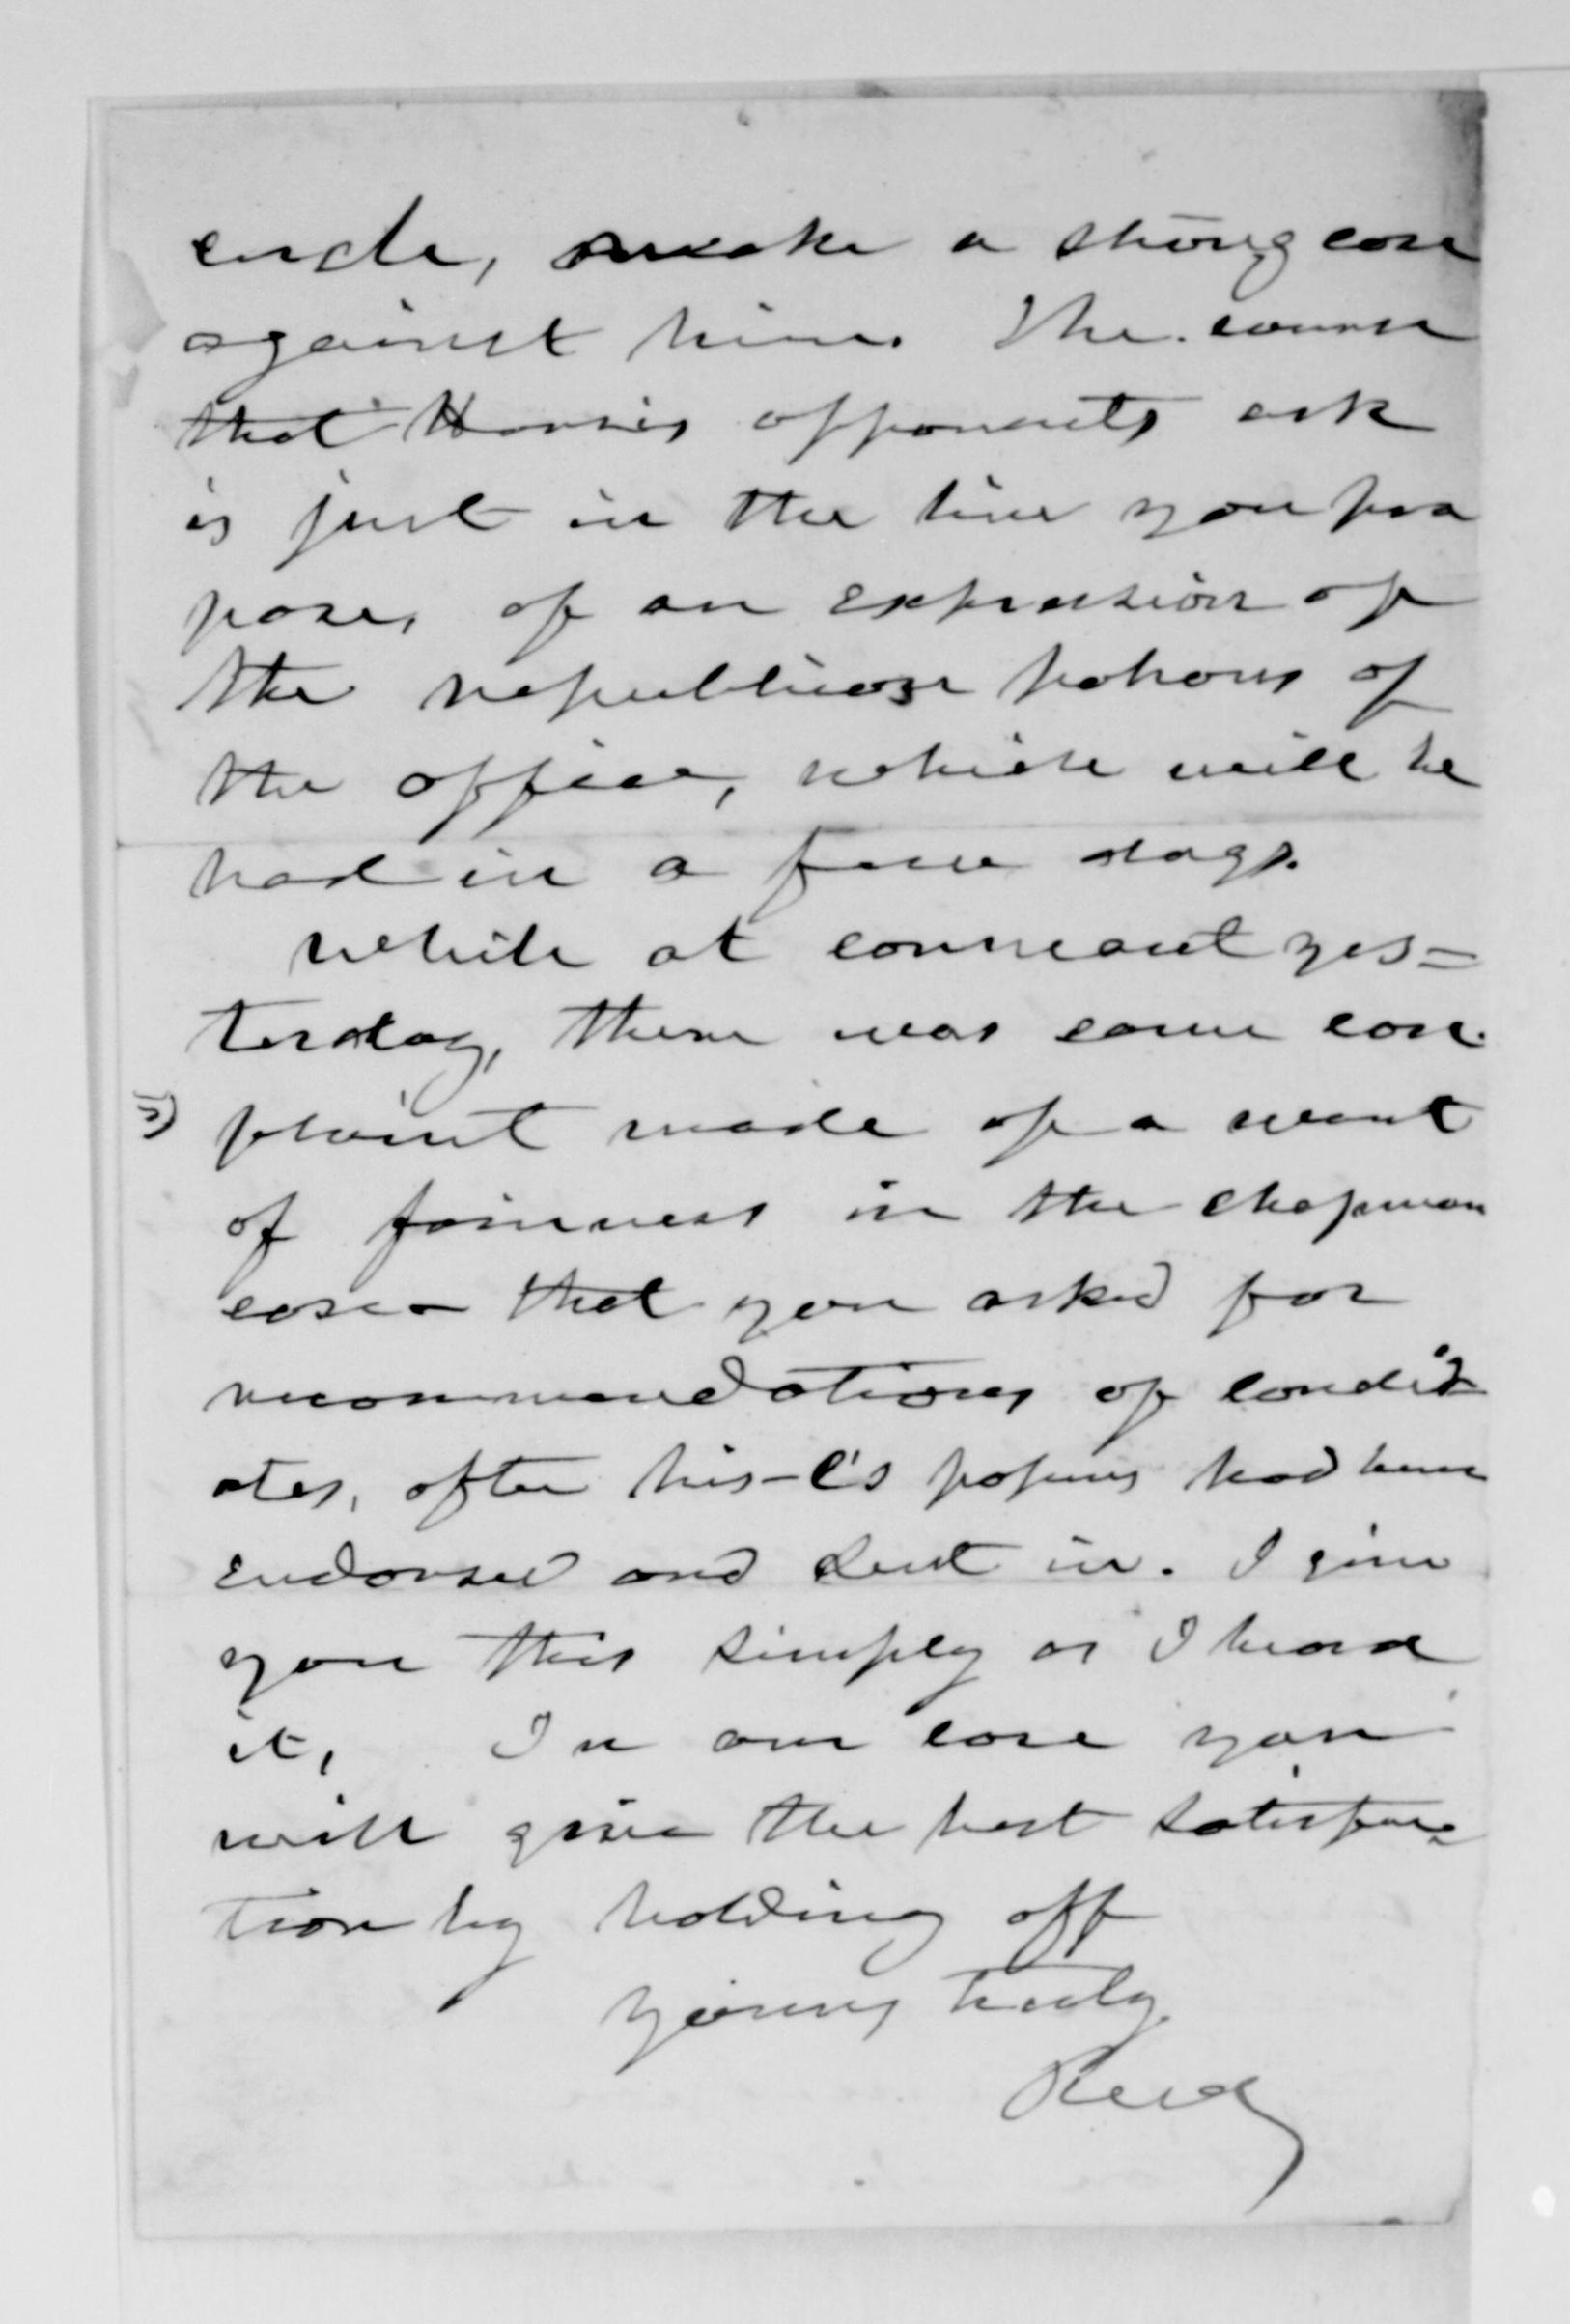 make a strong case
against him. The course
that Harris opponents ask
is just in the line you pro
pose, of an expression of
the republican patrons of
the office, which will be
had in a few days.
While at Conneaut yes=
terday, there was some com
plaint made of a want
of fairness in the Chapman
case – that you asked for
recommendations of candid
ates, after his – C's papers had been
endorsed and sent in. I give
you this simply as I heard
it, In our case you
will give the best satisfac
tion by holding off
Yours truly
Reed